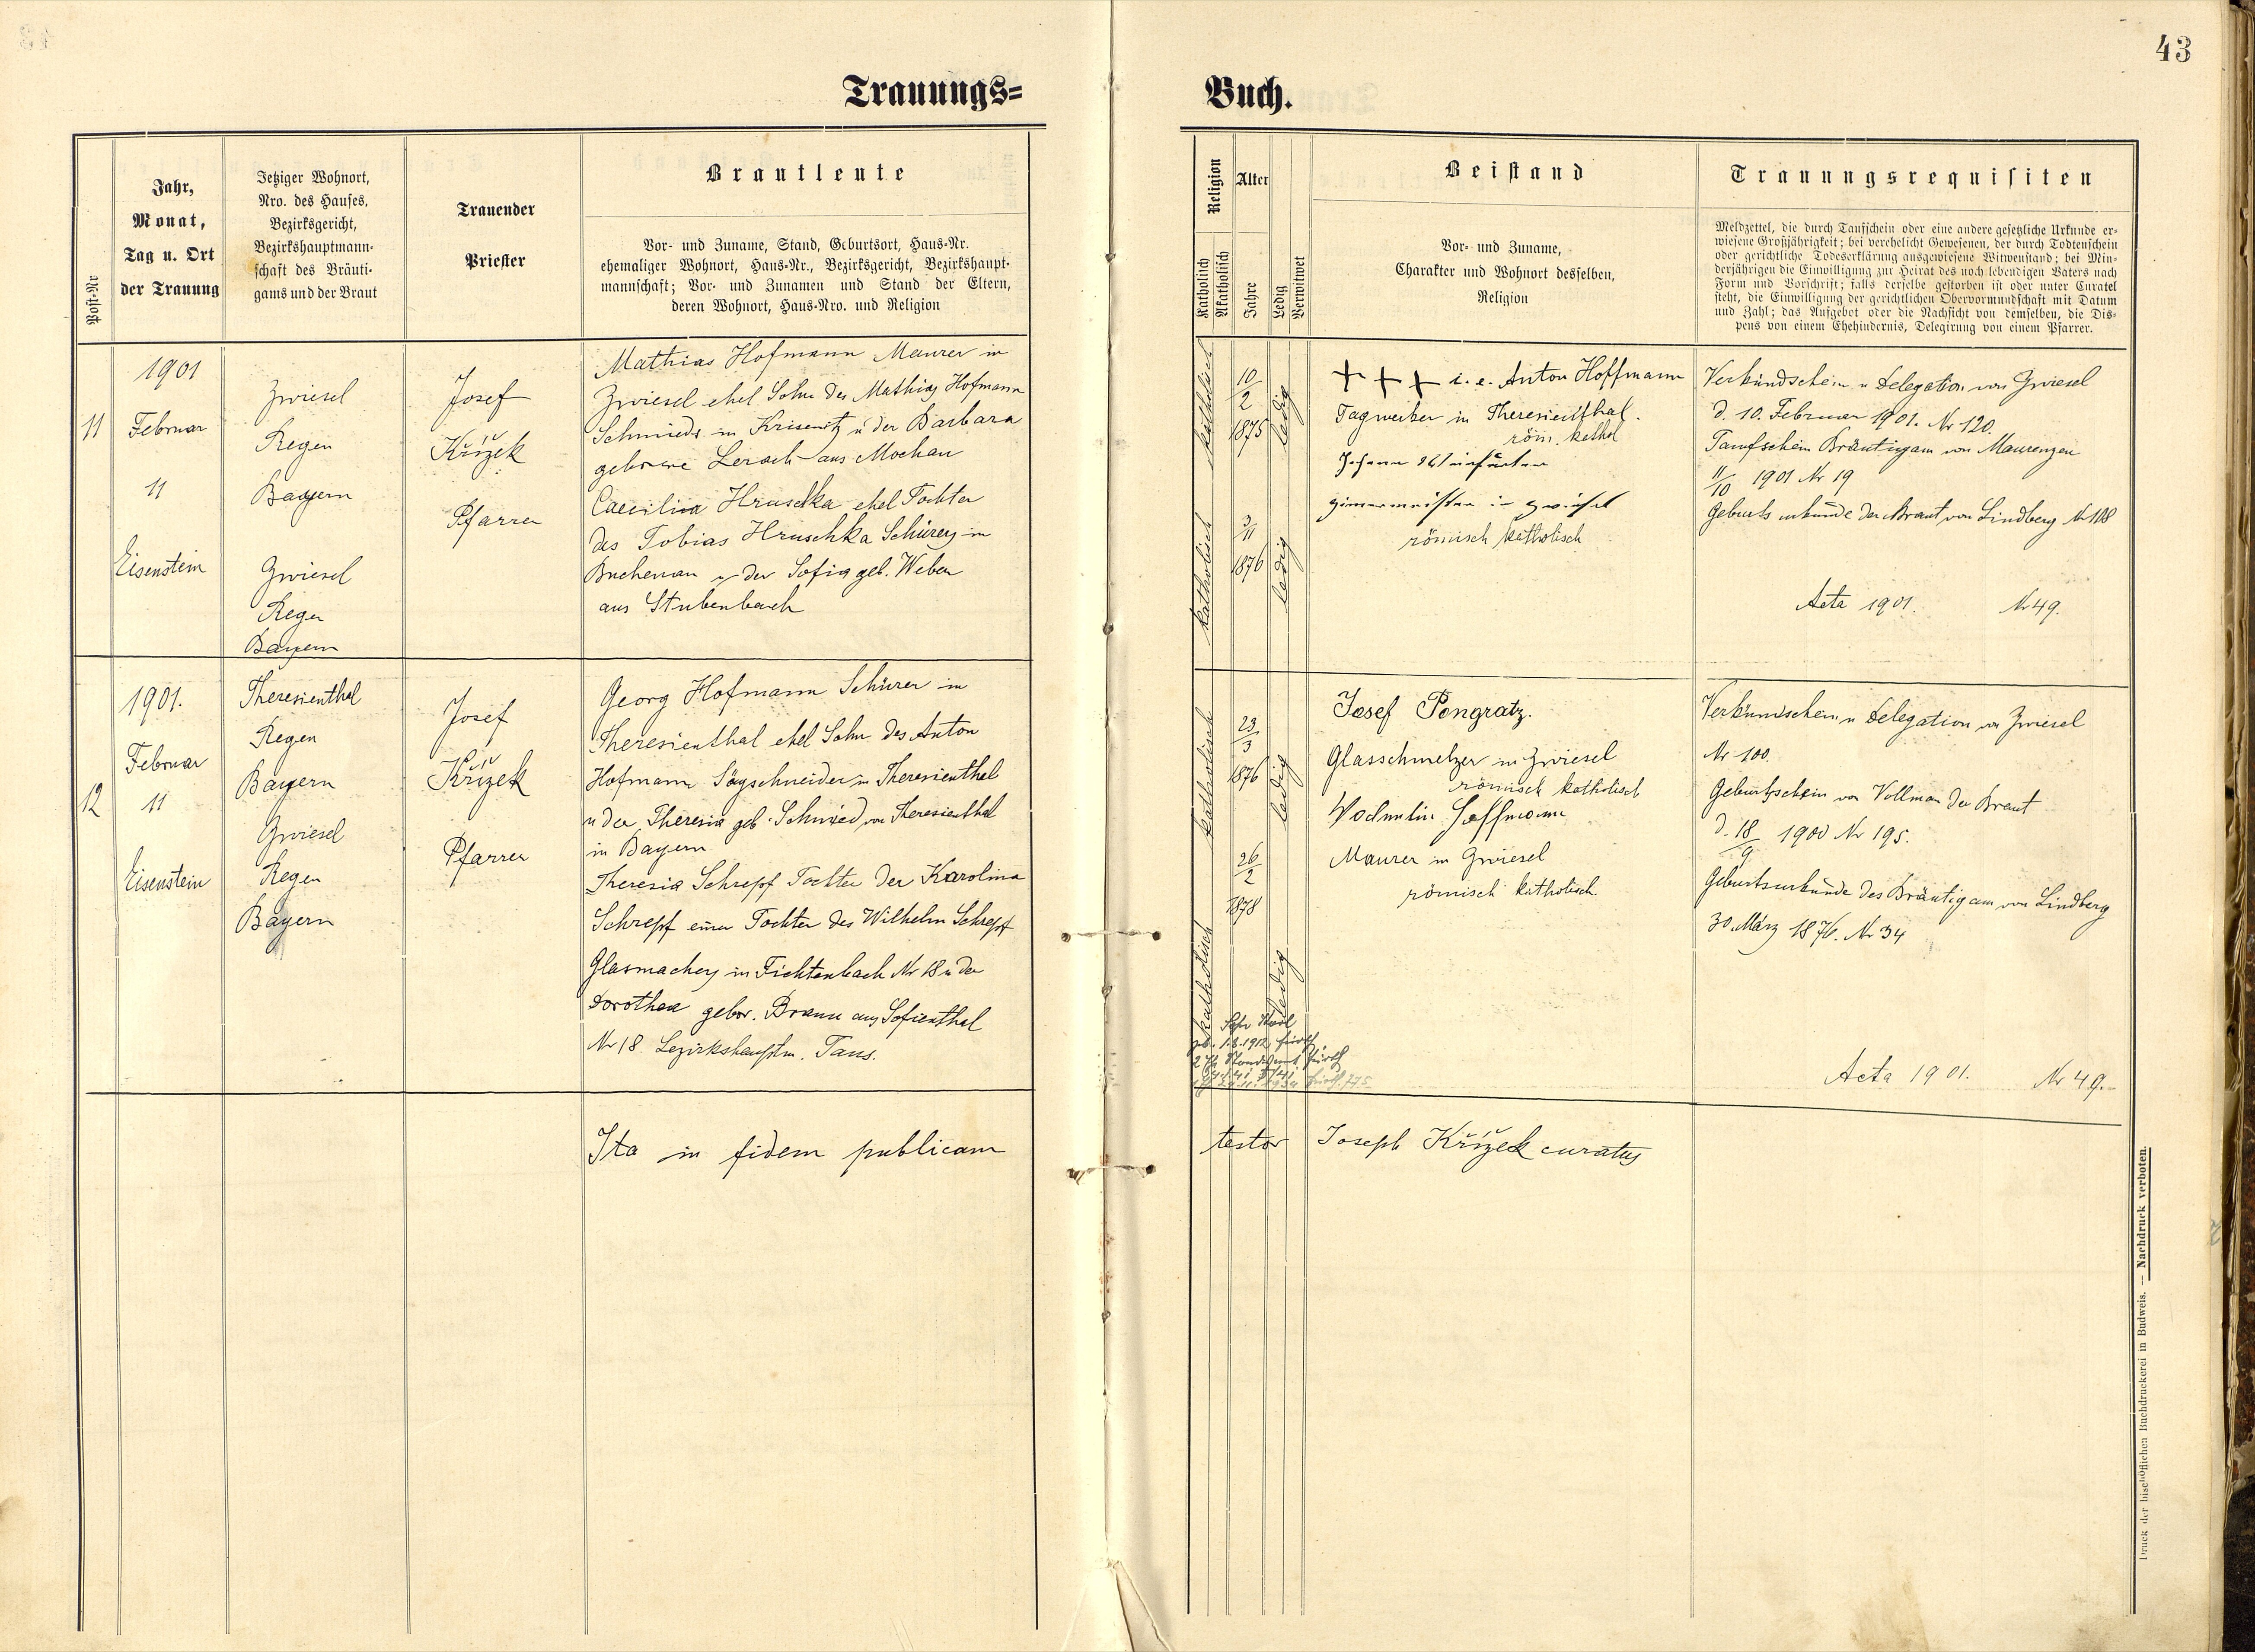 43
Trauungs=
Buch.
Post-Nr
Jahr,
Monat,
Tag u. Ort
der Trauung
Jetziger Wohnort,
Nro. des Hauses,
Bezirksgericht,
Bezirkshauptmann-
schaft des Bräuti-
gams und der Braut
Trauender
Priester
Brautleute
Vor- und Zuname, Stand, Geburtsort, Haus-Nr.
ehemaliger Wohnort, Haus-Nr., Bezirksgericht, Bezirkshaupt-
mannschaft; Vor- und Zunamen und Stand der Eltern,
deren Wohnort, Haus-Nro. und Religion
Religion
Katholisch
Akatholisch
Alter
Jahre
Ledig
Verwitwet
Beistand
Vor- und Zuname,
Charakter und Wohnort desselben,
Religion
Trauungsrequisiten
Meldzettel, die durch Taufschein oder eine andere gesetzliche Urkunde er-
wiesene Großjährigkeit; bei verehelicht Gewesenen, der durch Todtenschein
oder gerichtliche Todeserklärung ausgewiesene Witwenstand; bei Min-
derjährigen die Einwilligung zur Heirat des noch lebendigen Vaters nach
Form und Vorschrift; falls derselbe gestorben ist oder unter Curatel
steht, die Einwilligung der gerichtlichen Obervormundschaft mit Datum
und Zahl; das Aufgebot oder die Nachsicht von demselben, die Dis-
pens von einem Ehehindernis, Delegirung von einem Pfarrer.
11
1901
Februar
11
Eisenstein
Zwiesel
Regen
Bayern
Zwiesel
Regen
Bayern
Josef
Křížek
Pfarrer
Mathias Hofmann Maurer in
Zwiesel ehel Sohn des Mathias Hofmann
Schmieds in Krisenitz u der Barbara
geborene Lerach aus Mochau
Caecilia Hruschka ehel Tochter
des Tobias Hruschka Schürers in
Buchenau u der Sofia geb. Weber
aus Stubenbach
katholisch
10/2
1875
ledig
katholisch
3/11
1876
ledig
+ + + i. e. Anton Hoffmann
Tagwerker in Theresienthal.
röm. kathol
Johann
Zimmermeister in Zwiesel
römisch katholisch
Verkündschein u Delegation von Zwiesel
d. 10. Februar 1901. Nr 120.
Taufschein Bräutigam von Maurenzen
11/10 1901 Nr 19
Geburtsurkunde der Braut von Lindberg Nr 108
Acta 1901. Nr 49.
12
1901.
Februar
11
Eisenstein
Theresienthal
Regen
Bayern
Zwiesel
Regen
Bayern
Josef
Křížek
Pfarrer
Georg Hofmann Schürer in
Theresienthal ehel Sohn des Anton
Hofmann Sägschneider in Theresienthal
u der Theresia geb. Schmied von Theresienthal
in Bayern
Theresia Schrepf Tochter der Karolina
Schrepf einer Tochter des Wilhelm Schrepf
Glasmachers in Fichtenbach Nr 18 u der
Dorothea gebor. Braun aus Sofienthal
Nr 18. Bezirkshauptm. Taus.
katholisch
23/3
1876
ledig
katholisch
26/2
1878
ledig
Josef Pongratz.
Glasschmelzer in Zwiesel
römisch katholisch
Hoffmann
Maurer in Zwiesel
römisch katholisch.
Verkündschein u Delegation von Zwiesel
Nr 100.
Geburtsschein von Vollmau der Braut
d. 18/9 1900 Nr 195.
Geburtsurkunde des Bräutigam von Lindberg
30. März 1876. Nr 34
Acta 1901. Nr 49.
Ita in fidem publicam
testor Joseph Křížek curatus
Druck der bischöflichen Buchdruckerei in Budweis. — Nachdruck verboten.